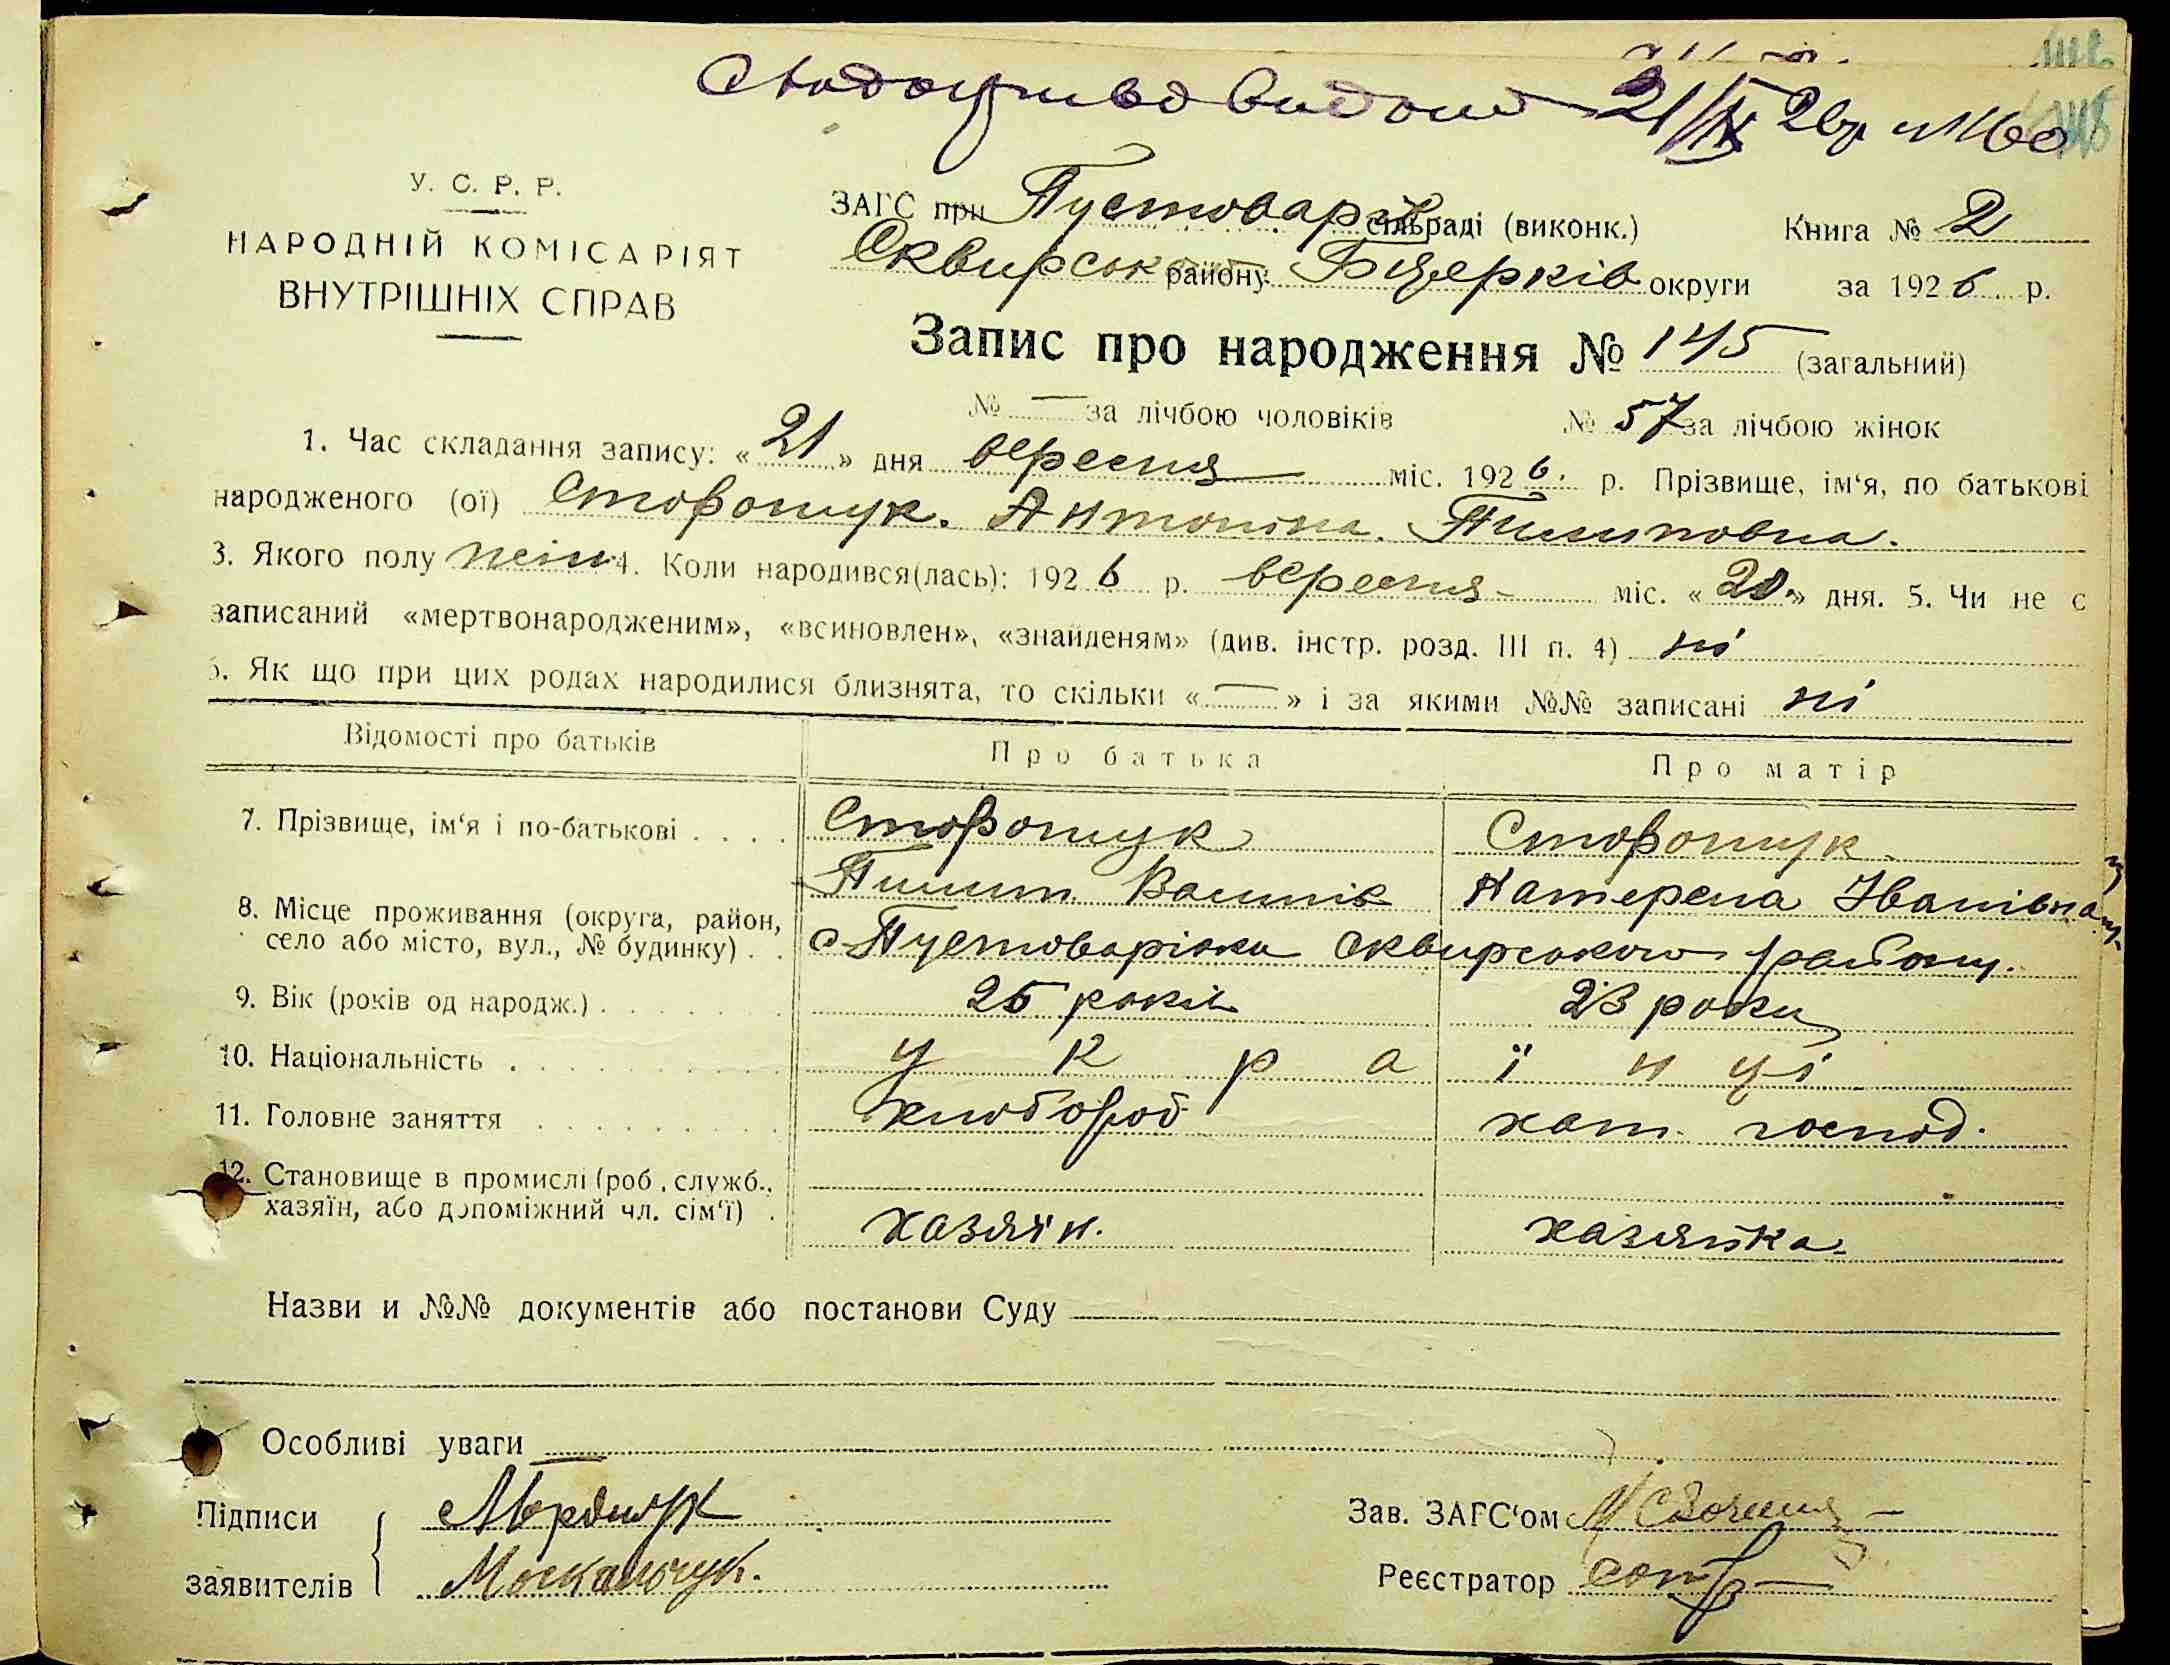 видано 21/IX 26 р
У. С. Р. Р.
НАРОДНІЙ КОМІСАРІЯТ
ВНУТРІШНІХ СПРАВ
ЗАГС при Пустоварів сільраді (виконк.) Книга № 2
Сквирськ району Б Церків округи за 1926 р.
Запис про народження № 145 (загальний)
№ — за лічбою чоловіків № 57 за лічбою жінок
1. Час складання запису: «21» дня вересня міс. 1926 р. Прізвище, ім'я, по батькові
народженого (ої) Сторожук. Антоніна. Пилиповна.
3. Якого полу жін 4. Коли народився(лась): 1926 р. вересня міс. «20» дня. 5. Чи не є
записаний «мертвонародженим», «всиновлен», «знайденям» (див. інстр. розд. III п. 4) ні
6. Як що при цих родах народилися близнята, то скільки «—» і за якими №№ записані ні
Відомості про батьків Про батька Про матір
7. Прізвище, ім'я і по-батькові Сторожук Сторожук
Пилип Катерена Іванівна
8. Місце проживання (округа, район,
село або місто, вул., № будинку) с Пустоварівка Сквирського району.
9. Вік (років од народж.) 25 років 23 роки
10. Національність українці
11. Головне заняття хлібороб хат. господ.
12. Становище в промислі (роб., служб.,
хазяїн, або допоміжний чл. сім'ї) хазяїн. хазяйка
Назви и №№ документів або постанови Суду
Особливі уваги
Підписи
заявителів Москальчук.
Зав. ЗАГС'ом
Реєстратор